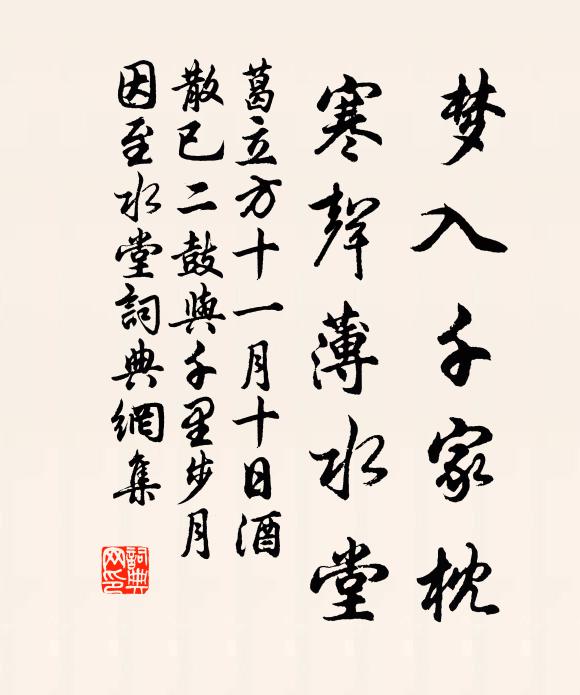 梦入千家枕
寒聲薄水堂
葛立方十一月十日酒
散已二鼓與千里步月
因至水堂詞典網集
詞典网印